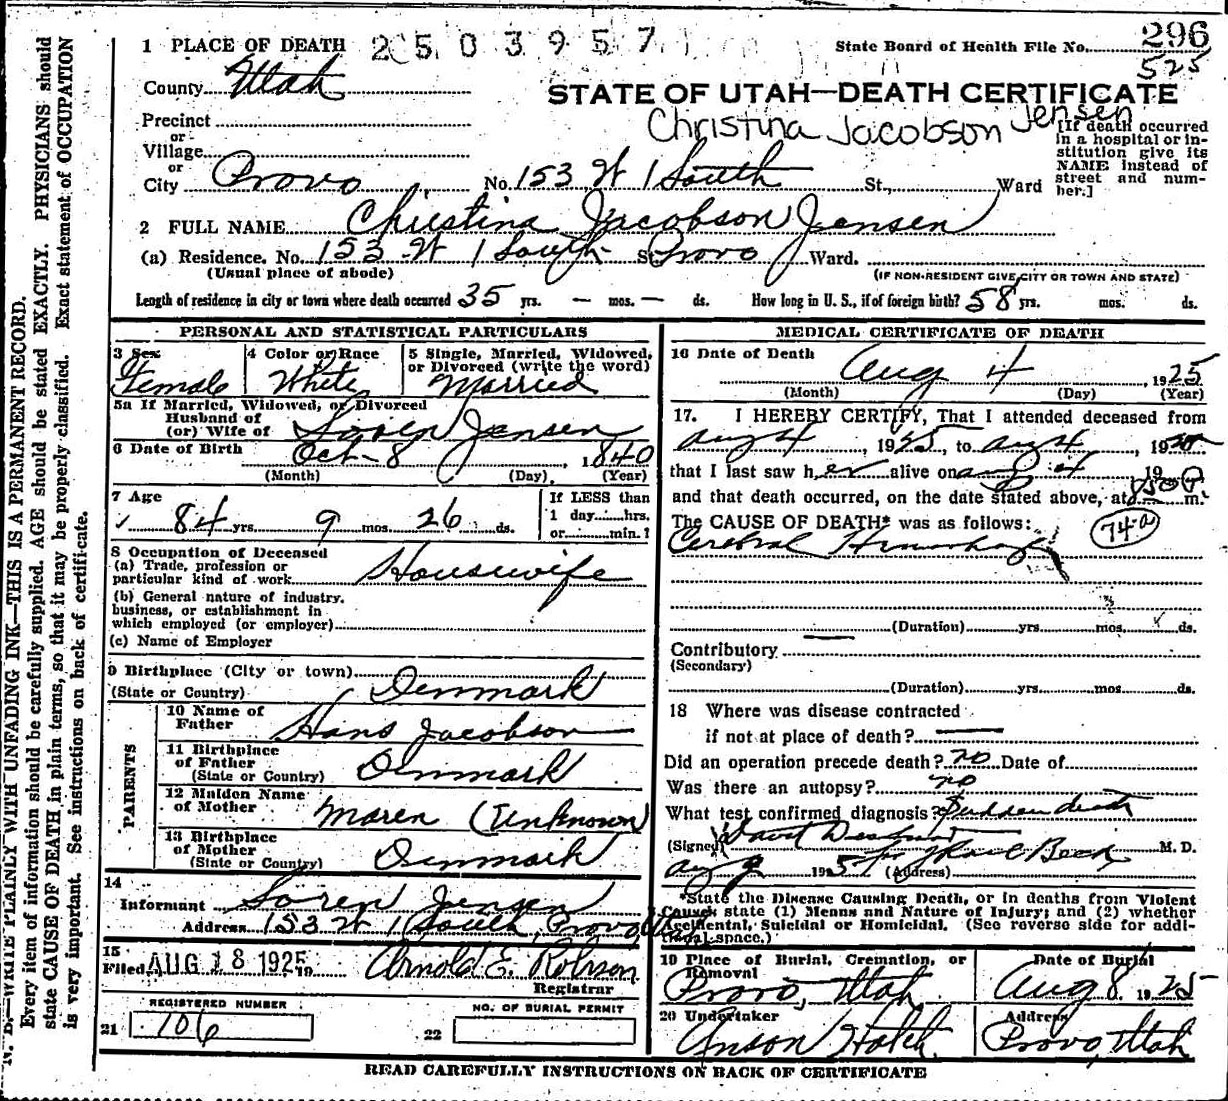 1 PLACE OF DEATH 2503957
State Board of Health File No. 296
525
County Utah
STATE OF UTAH—DEATH CERTIFICATE
Christina Jacobson Jensen
Precinct
or
Village
or
City Provo No. 153 W 1 South St., Ward
[If death occurred in a hospital or in-
stitution give its
NAME instead of
street and num-
ber.]
2 FULL NAME Christina Jacobson Jensen
(a) Residence. No. 153 W 1 South St. Provo Ward.
(Usual place of abode) (IF NON-RESIDENT GIVE CITY OR TOWN AND STATE)
Length of residence in city or town where death occurred 35 yrs. — mos. — ds. How long in U. S., if of foreign birth? 58 yrs. mos. ds.
PERSONAL AND STATISTICAL PARTICULARS
3 Sex 4 Color or Race 5 Single, Married, Widowed,
or Divorced (write the word)
Female White Married
5a If Married, Widowed, or Divorced
Husband of
(or) Wife of Soren Jensen
6 Date of Birth Oct - 8, 1840
(Month) (Day) (Year)
7 Age If LESS than
84 yrs. 9 mos. 26 ds. 1 day......hrs.
or......min.?
8 Occupation of Deceased
(a) Trade, profession or
particular kind of work Housewife
(b) General nature of industry,
business, or establishment in
which employed (or employer)
(c) Name of Employer
9 Birthplace (City or town)
(State or Country) Denmark
PARENTS
10 Name of
Father Hans Jacobson
11 Birthplace
of Father
(State or Country) Denmark
12 Maiden Name
of Mother Maren (Unknown)
13 Birthplace
of Mother
(State or Country) Denmark
14
Informant Soren Jensen
Address 153 W 1 South, Provo Utah
15
Filed AUG 18 1925 19 Arnold E. Robison
Registrar
REGISTERED NUMBER NO. OF BURIAL PERMIT
21 106 22
MEDICAL CERTIFICATE OF DEATH
16 Date of Death Aug 4, 1925
(Month) (Day) (Year)
17. I HEREBY CERTIFY, That I attended deceased from
Aug 4, 1925, to Aug 4, 19
that I last saw her alive on Aug 4 19
and that death occurred, on the date stated above, at m.
The CAUSE OF DEATH* was as follows:
Cerebral Hemorrhage 74a
(Duration) yrs. mos. ds.
Contributory
(Secondary)
(Duration) yrs. mos. ds.
18 Where was disease contracted
if not at place of death? —
Did an operation precede death? no Date of
Was there an autopsy? no
What test confirmed diagnosis? Sudden death
(Signed) M. D.
Aug 1925 (Address)
*State the Disease Causing Death, or in deaths from Violent
Causes state (1) Menns and Nature of Injury; and (2) whether
Accidental, Suicidal or Homicidal. (See reverse side for addi-
tional space.)
19 Place of Burial, Cremation, or
Removal Date of Burial
Provo, Utah Aug 8, 1925
20 Undertaker Address
Anson Hatch Provo, Utah
READ CAREFULLY INSTRUCTIONS ON BACK OF CERTIFICATE
N. B.—WRITE PLAINLY WITH UNFADING INK—THIS IS A PERMANENT RECORD.
Every item of information should be carefully supplied. AGE should be stated EXACTLY. PHYSICIANS should
state CAUSE OF DEATH in plain terms, so that it may be properly classified. Exact statement of OCCUPATION
is very important. See instructions on back of certificate.